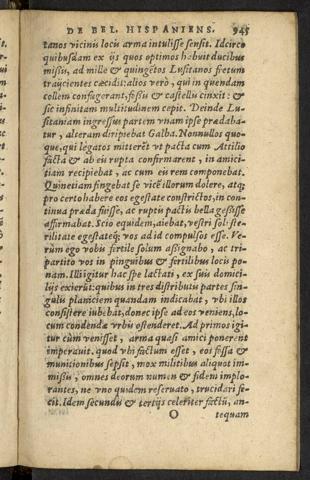 DE BEL. HISPANIENS. 945
tanos vicinū locū arma intulisse sensit. Idcirco
quibusdam ex ijs quos optimos habuit ducibus
missis, ad mille & quingētos Lusitanos fretum
traijcientes cæcidit: alios verò, qui in quendam
collem confugerant, fossa & castellis cinxit: &
sic infinitam multitudinem cepit. Deinde Lu-
sitaniam ingressus partem vnam ipse prædaba-
tur, alteram diripiebat Galba. Nonnullos quo-
que, qui legatos mitterēt vt pacta cum Attilio
facta & ab eu rupta confirmarent, in amici-
tiam recipiebat, ac cum eu rem componebat.
Quinetiam fingebat se vicē illorum dolere, atq;
pro certo habere eos egestate constrictos, in con-
tinua præda fuisse, ac ruptis pactis bella gessisse
affirmabat. Scio equidem, aiebat, vestri soli ste-
rilitate egestateq; vos ad id compulsos esse. Ve-
rùm ego vobis fertile solum assignabo, ac tri-
partito vos in pinguibus & fertilibus locis po-
nam. Illi igitur hac spe lactati, ex suis domici-
lijs exierūt: quibus in tres distributis partes sin-
gulis planiciem quandam indicabat, vbi illos
consistere iubebat, donec ipse ad eos veniens, lo-
cum condendæ vrbis ostenderet. Ad primos igi-
tur cùm venisset, arma quasi amici ponerent
imperauit. quod vbi factum esset, eos fossa &
munitionibus sepsit, mox militibus aliquot im-
missis, omnes deorum numen & fidem implo-
rantes, ne vno quidem reseruato, trucidari fe-
cit. Idem secundis & tertijs celeriter factū, an-
O tequam